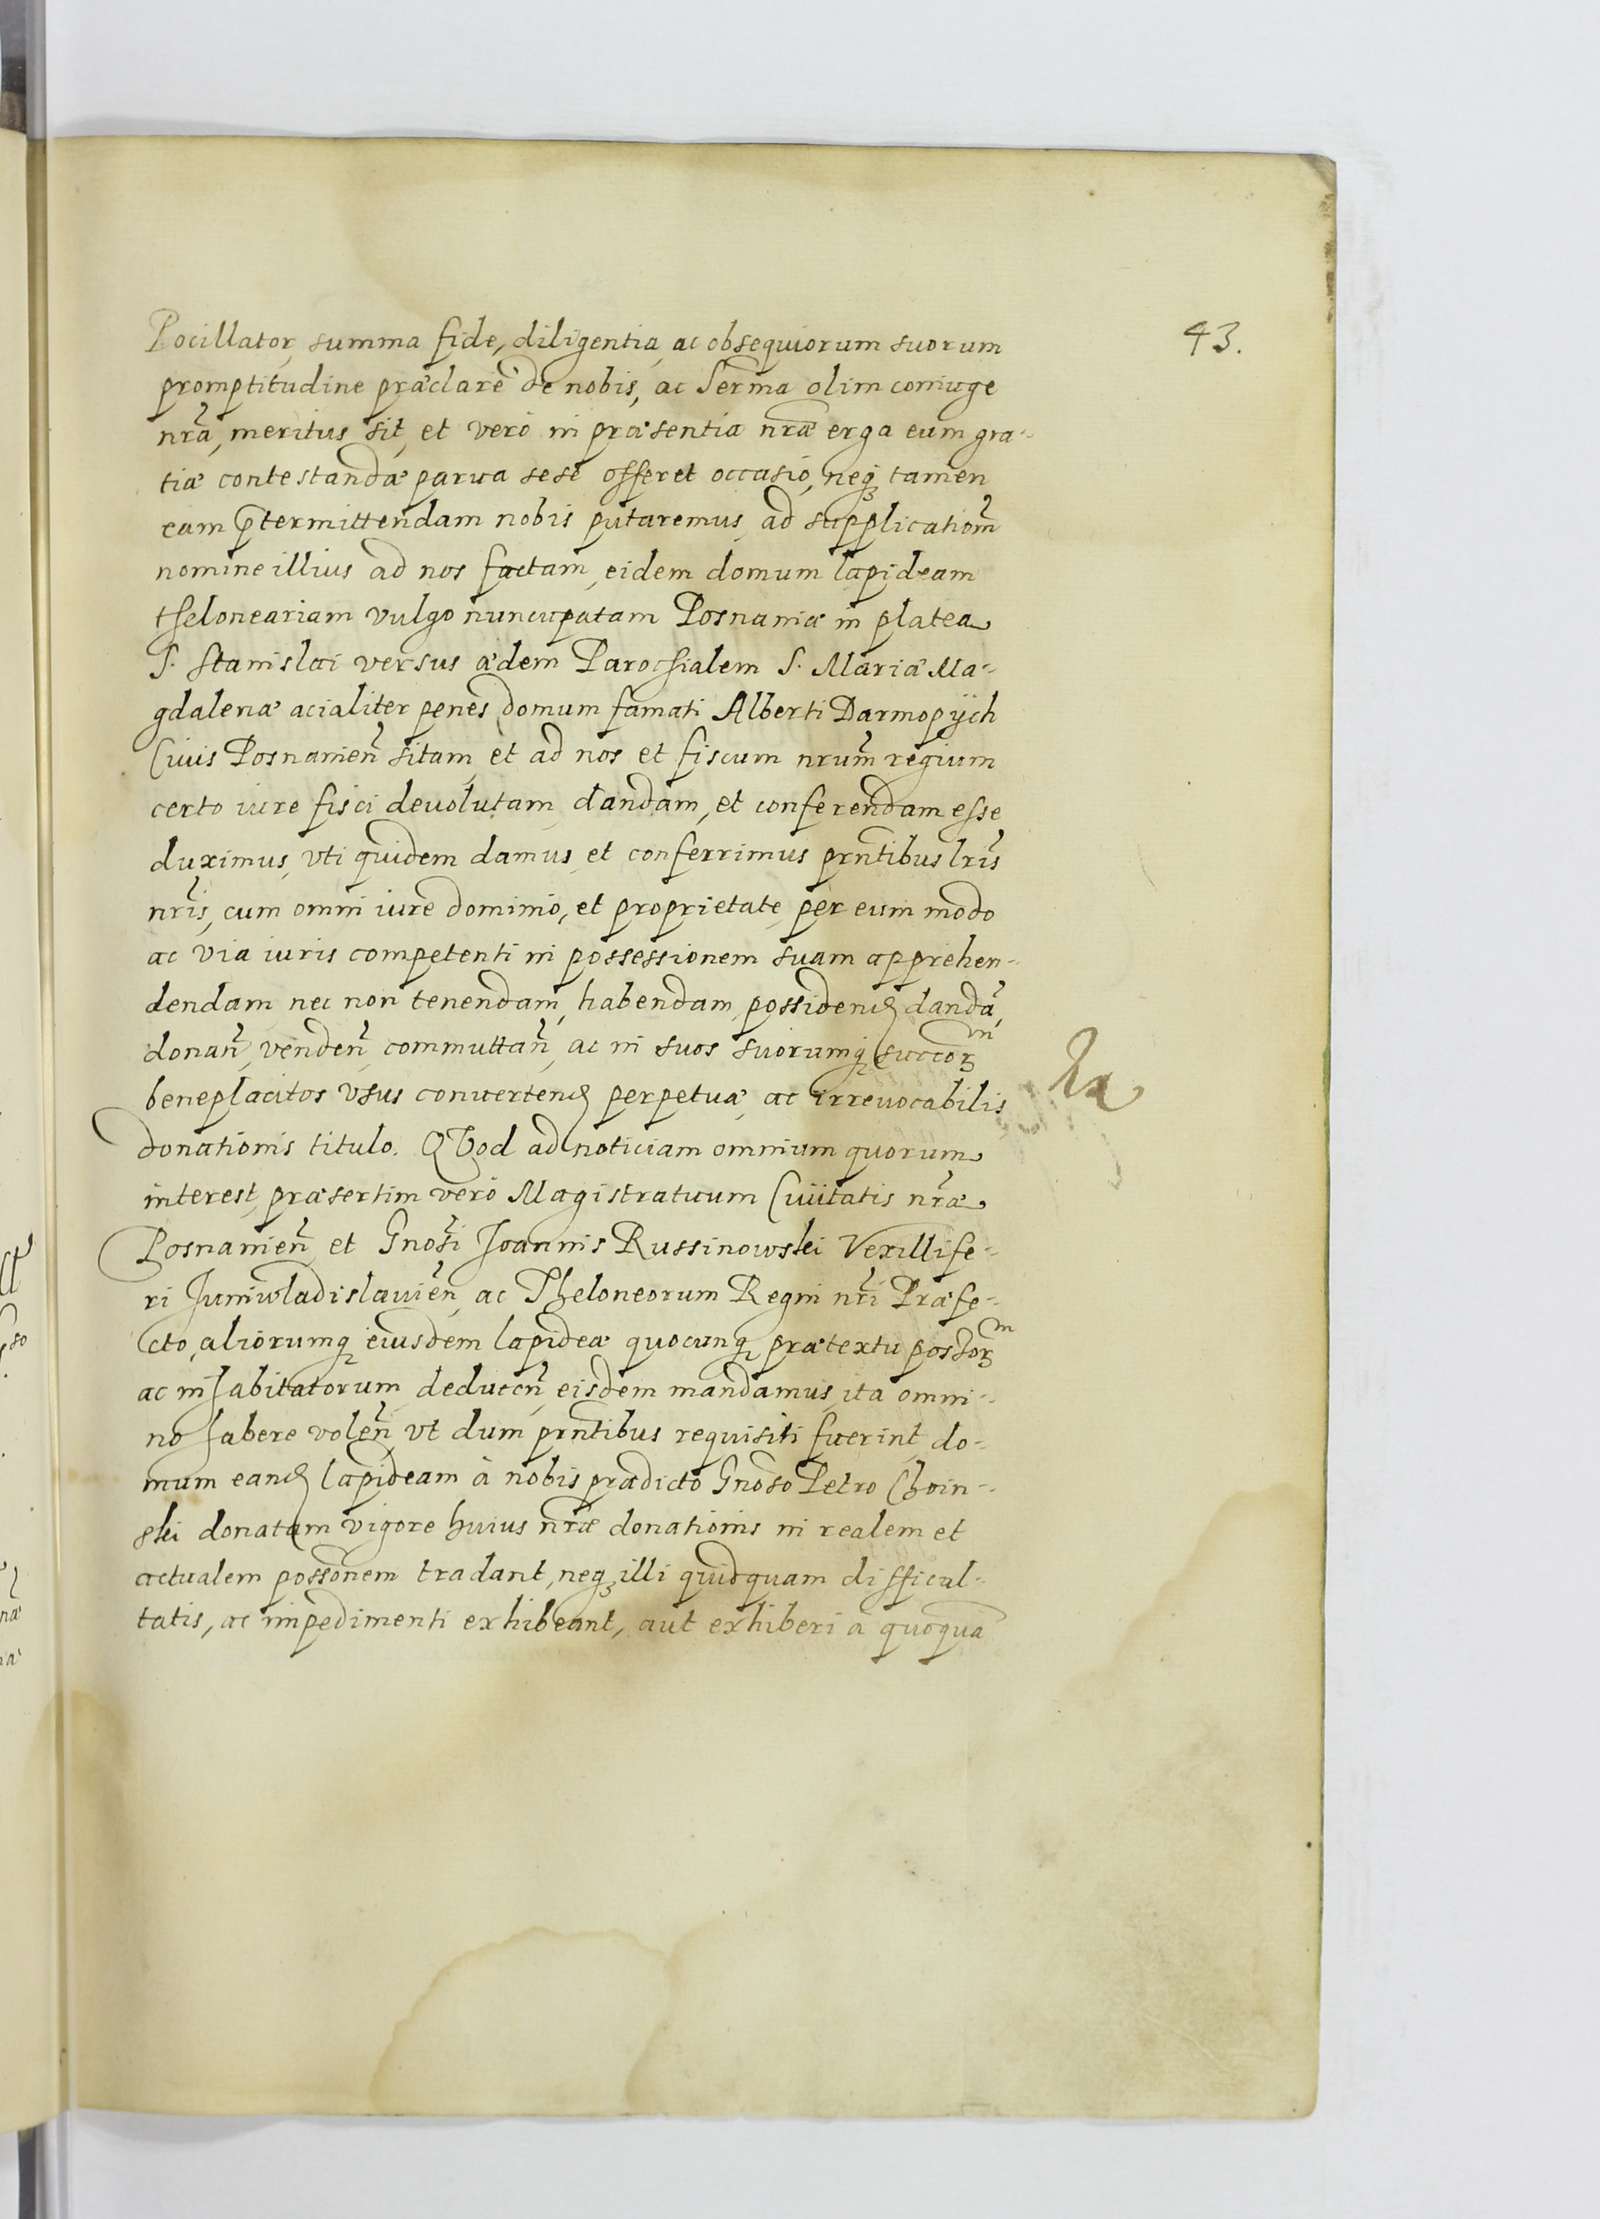 43.
Pocillator, summa fide, diligentia, ac obsequiorum suorum
promptitudine præclarè de nobis, ac Serma olim coniuge
nrã, meritus sit, et verò in præsentia nræ erga eum gra-
tiæ contestandæ parua sese offeret occasio, neq tamen
eam p̃termittendam nobis putaremus, ad supplicationẽ
nomine illius ad nos factam, eidem domum lapideam
theloneariam vulgo nuncupatam Posnaniæ in platea
S. Stanislai versus ædem Parochialem S. Mariæ Ma-
gdalenæ acialiter penes domum famati Alberti Darmopych
Ciuis Posnanieñ sitam, et ad nos et fiscum nrum̃ regium
certo iure fisci deuolutam, dandam, et conferendam esse
duximus, vti quidem damus, et conferrimus prñtibus lrĩs
nrĩs, cum omni iure dominio, et proprietate, per eum modo
ac via iuris competenti in possessionem suam apprehen-
dendam nec non tenendam, habendam, possidend, dandã,
donañ, vendeñ, commuttañ, ac in suos suorumq succorm
beneplacitos vsus conuertend, perpetuæ, ac irreuocabilis
donationis titulo. QVod ad noticiam omnium quorum
interest, præsertim verò Magistratuum Ciuitatis nræ
Posnanieñ, et Gnosi Joannis Russinowski Vexillife-
ri Juniwladislauieñ, ac Theloneorum Regni nrĩ Præfe-
cto, aliorumq eiusdem lapideæ quocunq prætextu possorm
ac inhabitatorum deduceñ, eisdem mandamus, ita omni-
no habere voleñ, vt dum prñtibus requisiti fuerint, do-
mum eand lapideam à nobis prædicto Gnoso Petro Choin-
ski donatam vigore huius nræ donationis in realem et
actualem possõnem tradant, neq illi quidquam difficul-
tatis, ac impedimenti exhibeant, aut exhiberi à quoquã